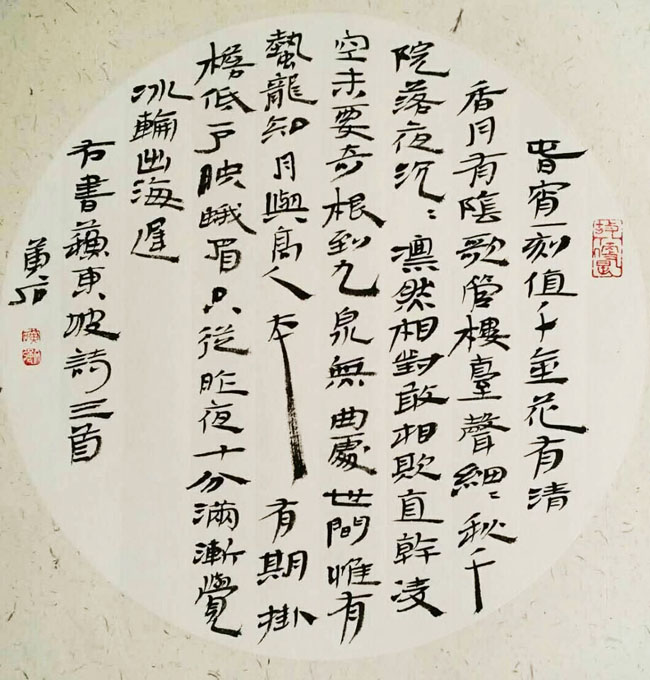 春宵一刻值千金花有清
香月有陰歌管樓臺聲細〻秋千
院落夜沉〻凜然相對敢相欺直幹凌
空未要奇根到九泉無曲處世間惟有
蟄龍知月與高人本有期掛
檐低戶映蛾眉只從昨夜十分滿漸覺
冰輪出海遲
右書蘇東坡詩三首